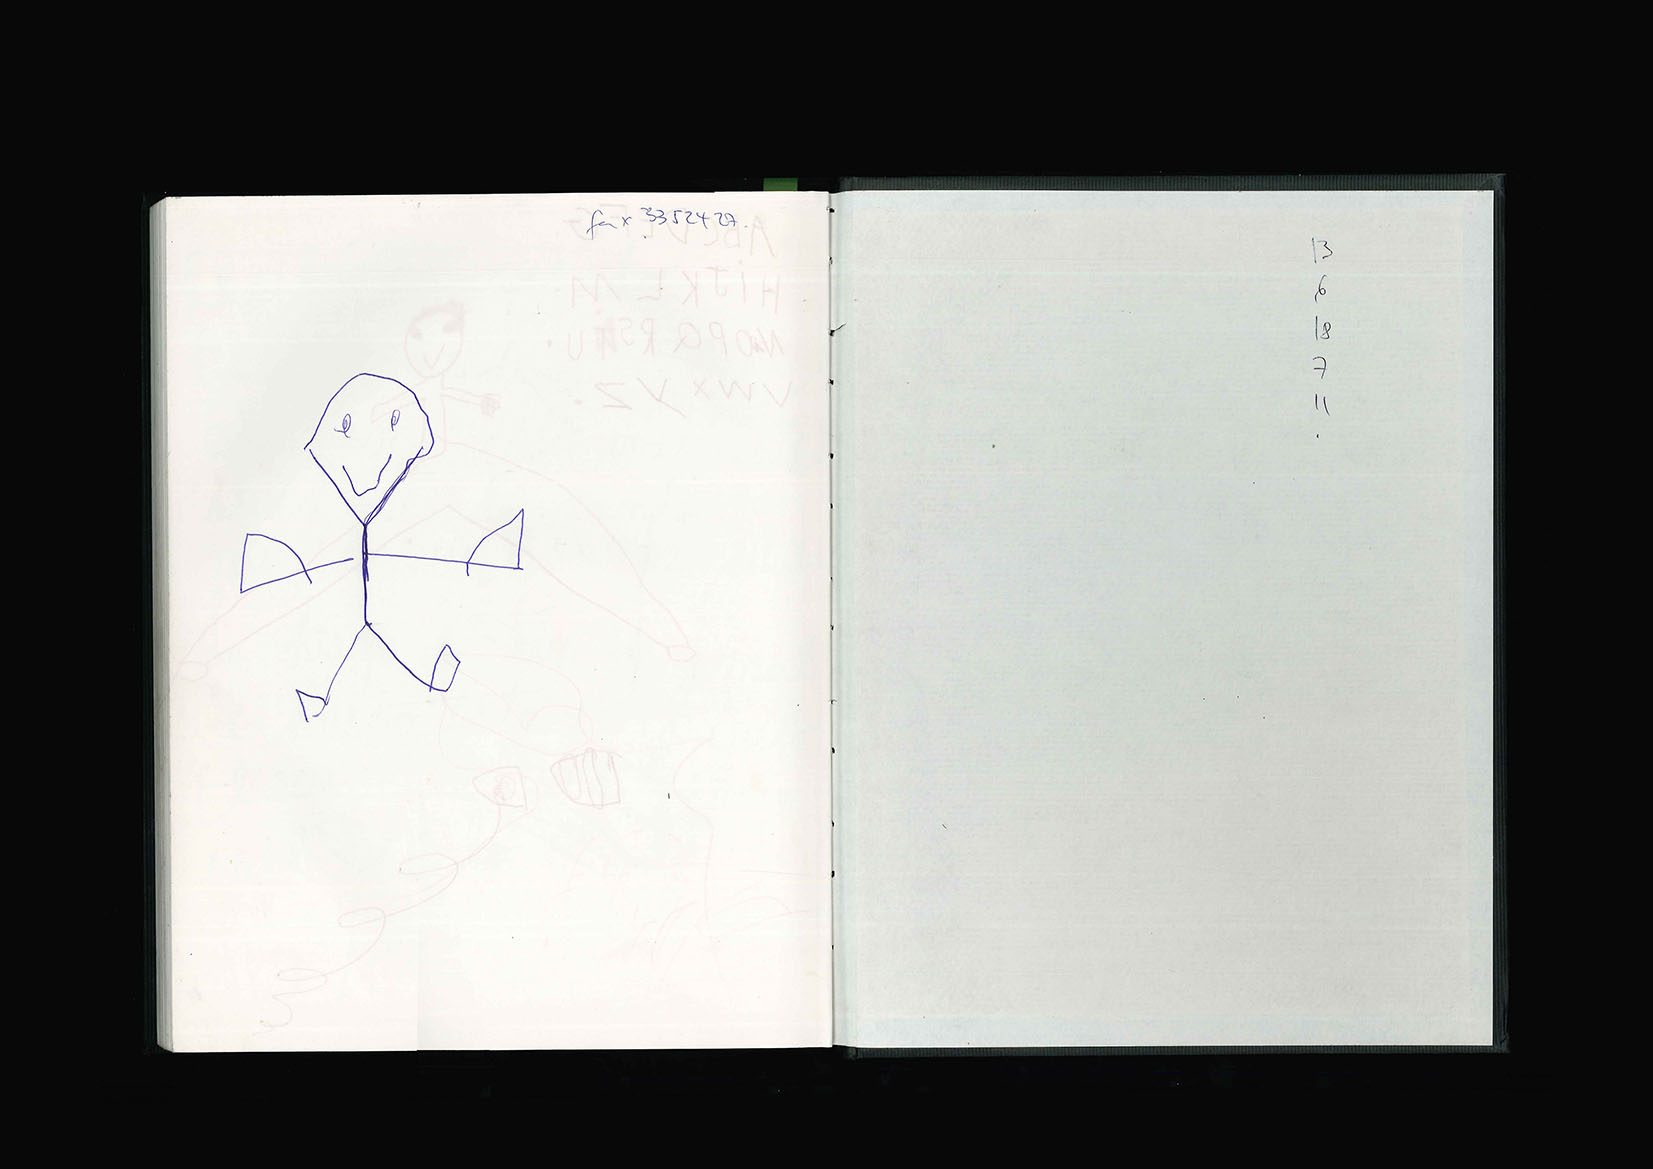 fax 3352427.
ABCDEFG
HIJKLM.
NOPQRSTU.
VWXYZ.
13
6
18
7
11
.